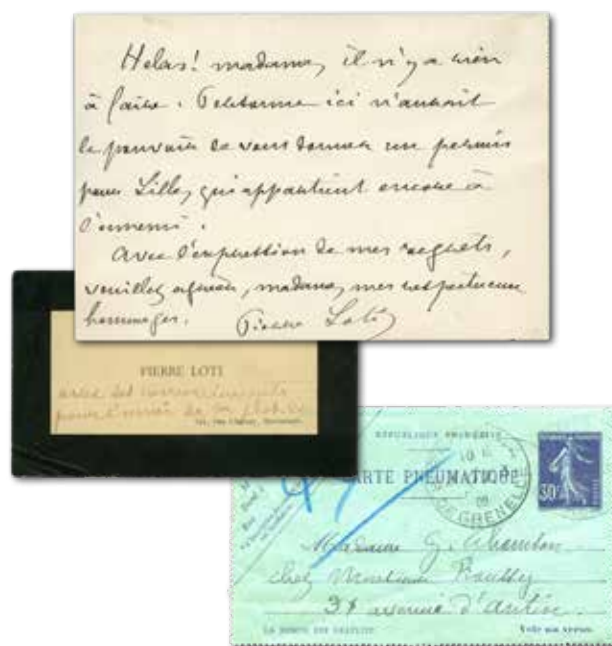 Helas! madame, il n'y a rien
à faire. Personne ici n'aurait
le pouvoir de vous donner un permis
pour Lille, qui appartient encore à
l'ennemi.
Avec l'expression de mes regrets,
veuillez agréer, madame, mes respectueux
hommages. Pierre Loti
PIERRE LOTI
avec ses remerciements
pour l'envoi de
RÉPUBLIQUE FRANÇAISE
CARTE PNEUMATIQUE
30c
DE GRENELLE
Madame G.
chez
31 avenue d'Antin